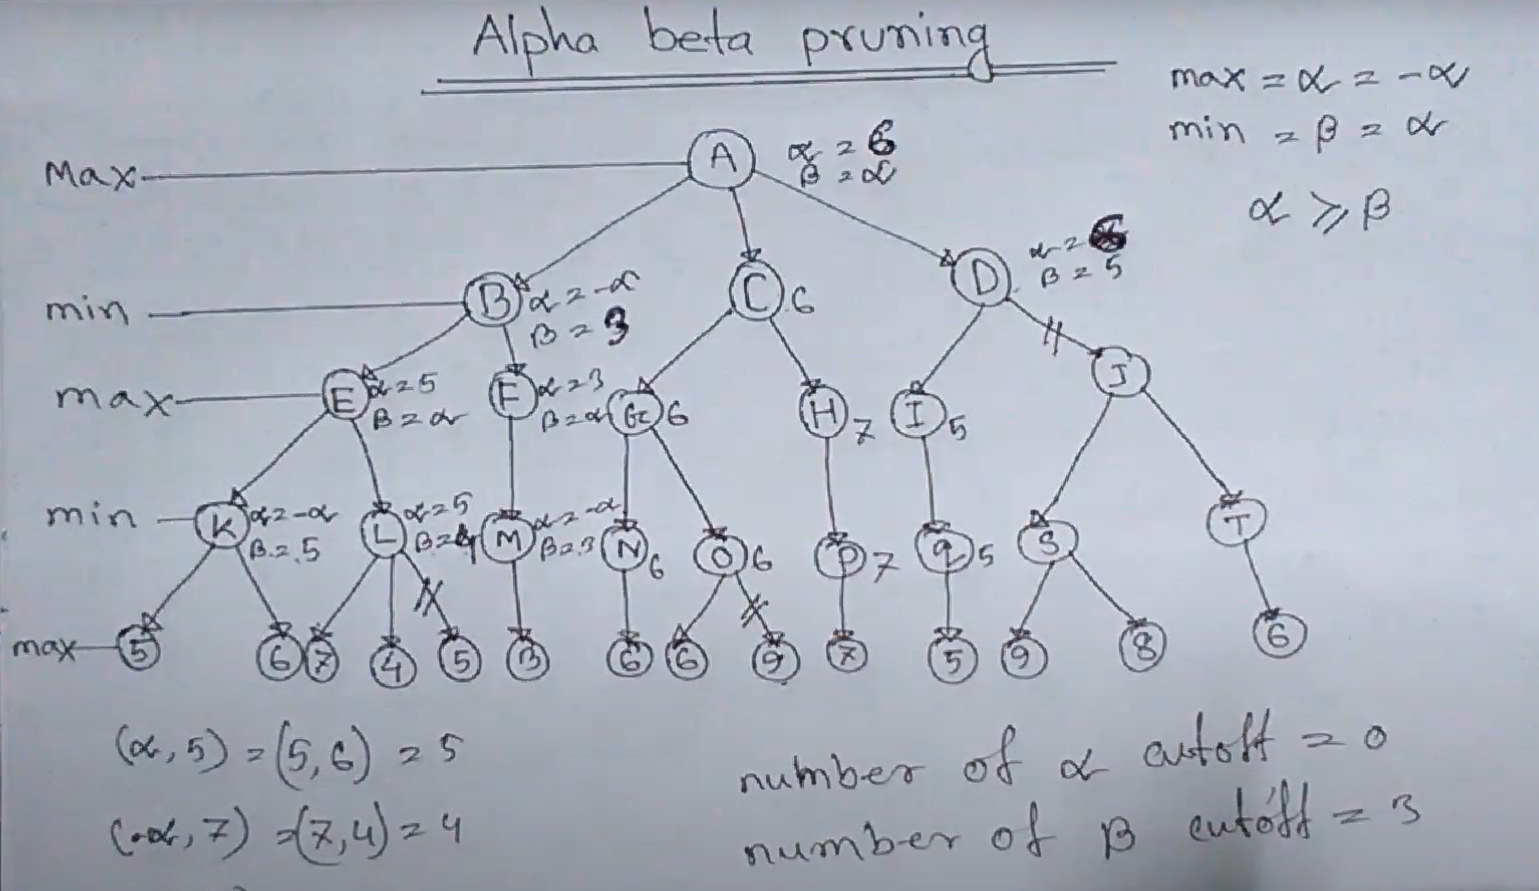 Alpha beta pruning
max = α = -α
min = β = α
α ≥ β
Max
A
α = 6
β = α
min
B
α = -α
β = 3
C
6
D
α =
β = 5
max
E
α = 5
β = α
F
α = 3
β = α
G
6
H
7
I
5
J
min
K
α = -α
β = 5
L
α = 5
β = 4
M
α = -α
β = 3
N
6
O
6
P
7
q
5
S
T
max
5 6 7 4 5 3 6 6 9 7 5 9 8 6
(α, 5) = (5, 6) = 5
(-α, 7) = (7, 4) = 4
number of α cutoff = 0
number of β cutoff = 3